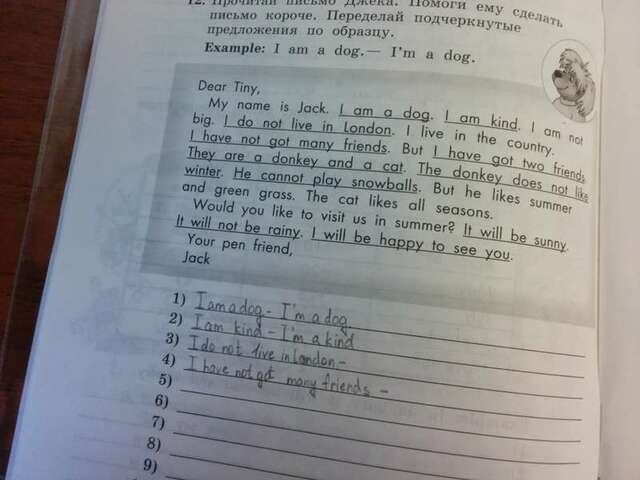 12. Прочитай письмо Джека. Помоги ему сделать
письмо короче. Переделай подчеркнутые
предложения по образцу.
Example: I am a dog.— I'm a dog.
Dear Tiny,
My name is Jack. I am a dog. I am kind. I am not
big. I do not live in London. I live in the country.
I have not got many friends. But I have got two friends.
They are a donkey and a cat. The donkey does not like
winter. He cannot play snowballs. But he likes summer
and green grass. The cat likes all seasons.
Would you like to visit us in summer? It will be sunny.
It will not be rainy. I will be happy to see you.
Your pen friend,
Jack
1) I am a dog - I'm a dog.
2) I am kind - I'm a kind
3) I do not live in London -
4) I have not got many friends -
5)
6)
7)
8)
9)